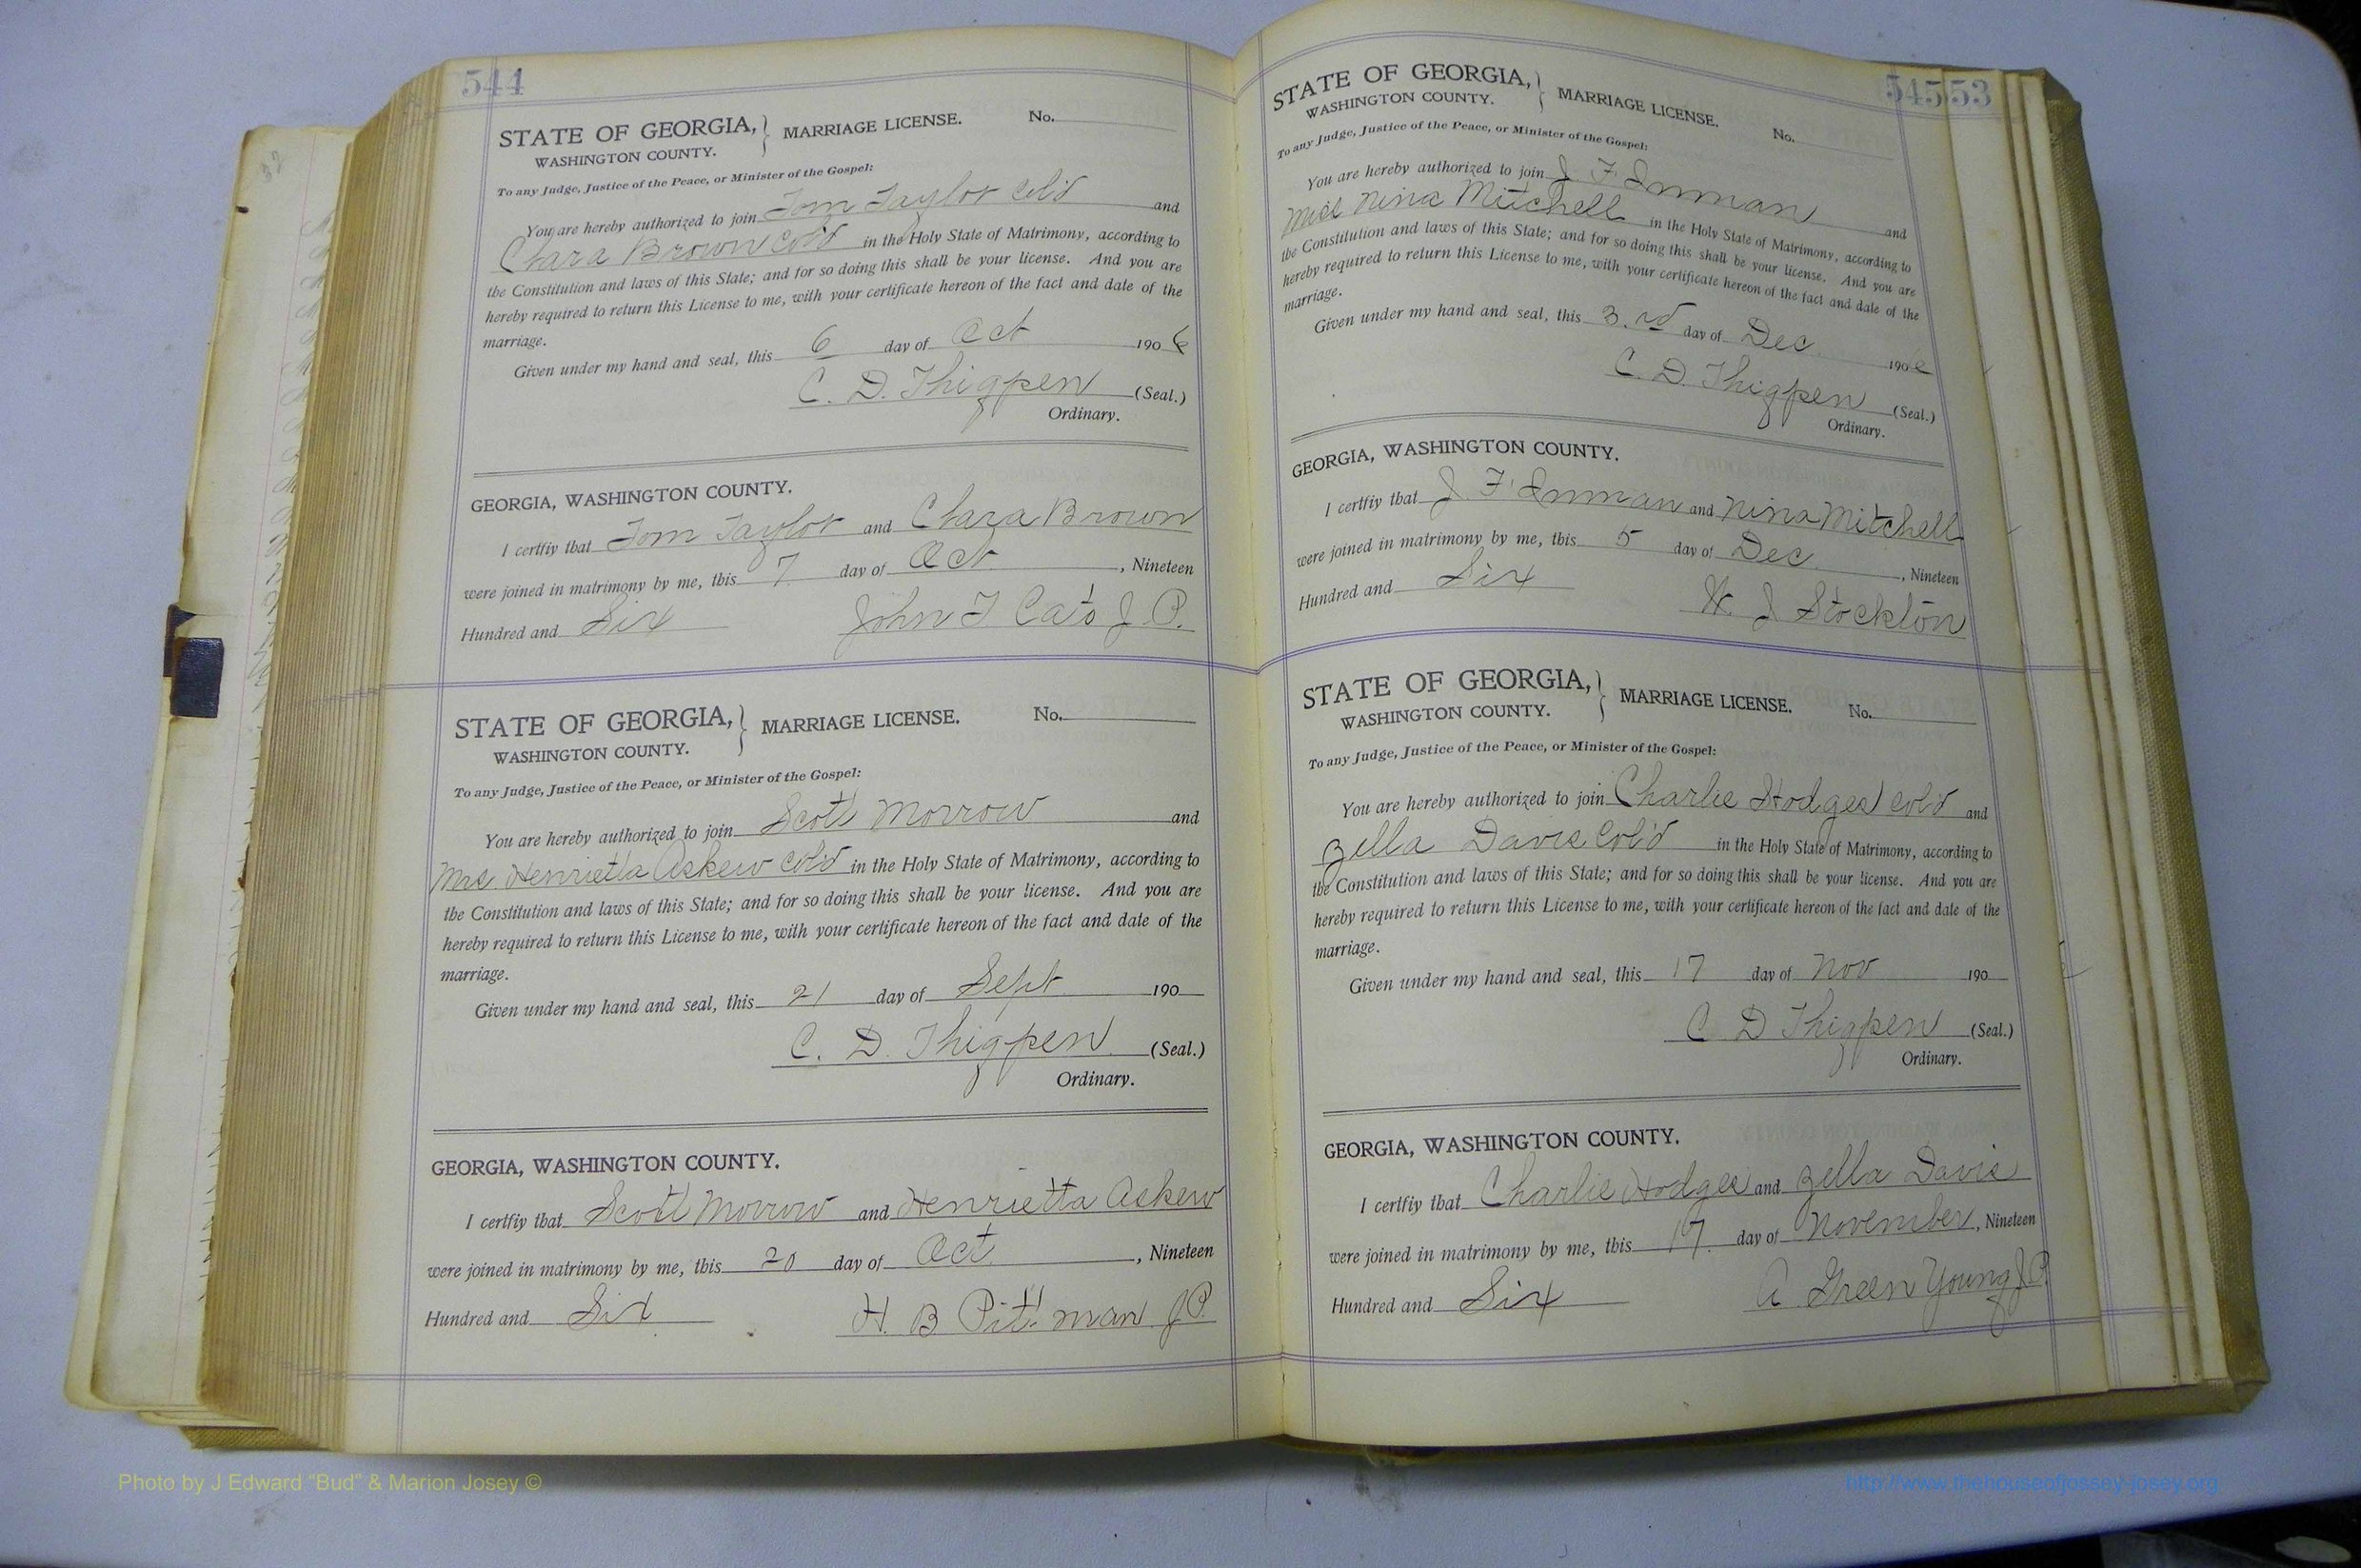 544
STATE OF GEORGIA, } MARRIAGE LICENSE. No.
WASHINGTON COUNTY.
To any Judge, Justice of the Peace, or Minister of the Gospel:
You are hereby authorized to join Tom Taylor Col'd and
Chara Brown Col'd in the Holy State of Matrimony, according to
the Constitution and laws of this State; and for so doing this shall be your license. And you are
hereby required to return this License to me, with your certificate hereon of the fact and date of the
marriage.
Given under my hand and seal, this 6 day of Oct 1906
C. D. Thigpen (Seal.)
Ordinary.
GEORGIA, WASHINGTON COUNTY.
I certfiy that Tom Taylor and Chara Brown
were joined in matrimony by me, this 7 day of Oct, Nineteen
Hundred and Six John T Cato J. P.
STATE OF GEORGIA, } MARRIAGE LICENSE. No.
WASHINGTON COUNTY.
To any Judge, Justice of the Peace, or Minister of the Gospel:
You are hereby authorized to join Scott Morrow and
Mrs. Henrietta Askew Col'd in the Holy State of Matrimony, according to
the Constitution and laws of this State; and for so doing this shall be your license. And you are
hereby required to return this License to me, with your certificate hereon of the fact and date of the
marriage.
Given under my hand and seal, this 21 day of Sept 190
C. D. Thigpen (Seal.)
Ordinary.
GEORGIA, WASHINGTON COUNTY.
I certfiy that Scott Morrow and Henrietta Askew
were joined in matrimony by me, this 20 day of Oct., Nineteen
Hundred and Six H. B Pittman J.P.
545 53
STATE OF GEORGIA, } MARRIAGE LICENSE. No.
WASHINGTON COUNTY.
To any Judge, Justice of the Peace, or Minister of the Gospel:
You are hereby authorized to join J. F. Inman and
Miss Nina Mitchell in the Holy State of Matrimony, according to
the Constitution and laws of this State; and for so doing this shall be your license. And you are
hereby required to return this License to me, with your certificate hereon of the fact and date of the
marriage.
Given under my hand and seal, this 3.rd day of Dec. 1906
C. D. Thigpen (Seal.)
Ordinary.
GEORGIA, WASHINGTON COUNTY.
I certfiy that J. F. Inman and Nina Mitchell
were joined in matrimony by me, this 5 day of Dec., Nineteen
Hundred and Six J Stockton
STATE OF GEORGIA, } MARRIAGE LICENSE. No.
WASHINGTON COUNTY.
To any Judge, Justice of the Peace, or Minister of the Gospel:
You are hereby authorized to join Charlie Hodges Col'd and
Zella Davis Col'd in the Holy State of Matrimony, according to
the Constitution and laws of this State; and for so doing this shall be your license. And you are
hereby required to return this License to me, with your certificate hereon of the fact and date of the
marriage.
Given under my hand and seal, this 17 day of Nov 190
C D Thigpen (Seal.)
Ordinary.
GEORGIA, WASHINGTON COUNTY.
I certfiy that Charlie Hodges and Zella Davis
were joined in matrimony by me, this 17. day of November, Nineteen
Hundred and Six A Green Young J.P.
Photo by J Edward "Bud" & Marion Josey ©
http://www.thehouseofjossey-josey.org